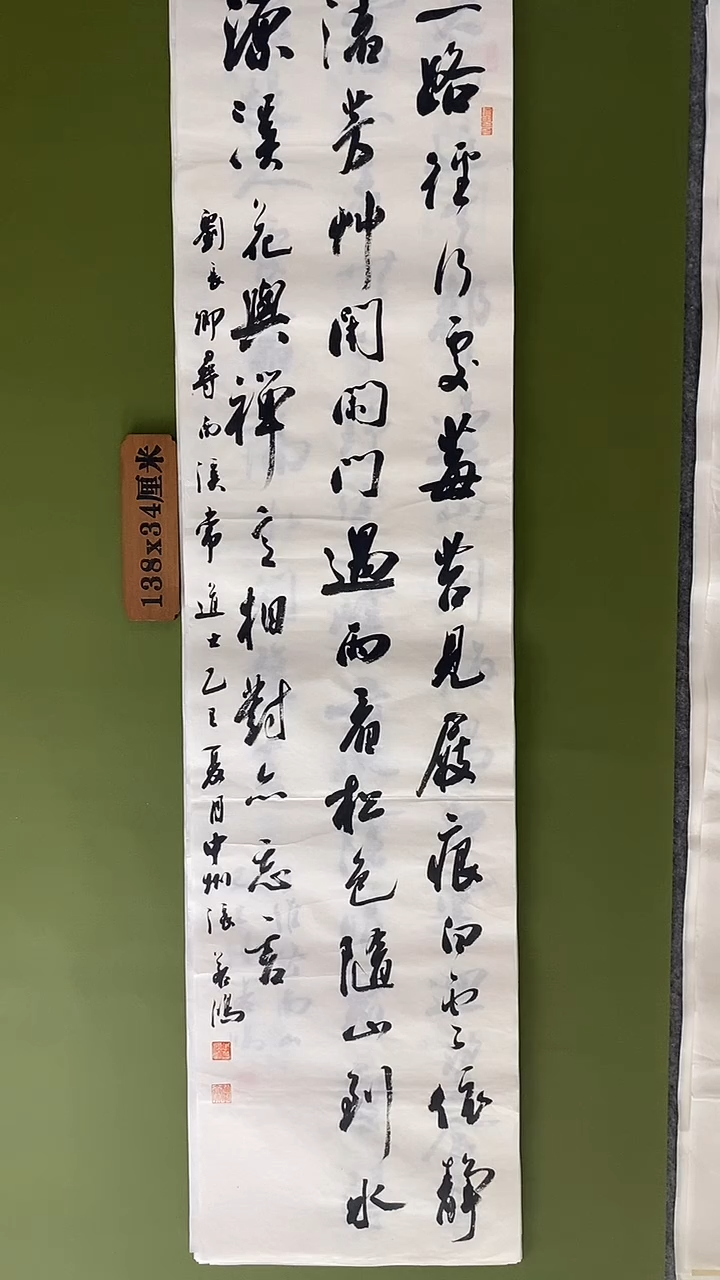 一路經行處莓苔見屐痕白雲依靜
渚芳艸閉閑門過雨看松色隨山到水
源溪花與禪意相對亦忘言
劉長卿尋南溪常道士乙巳夏月中州張
138x34厘米